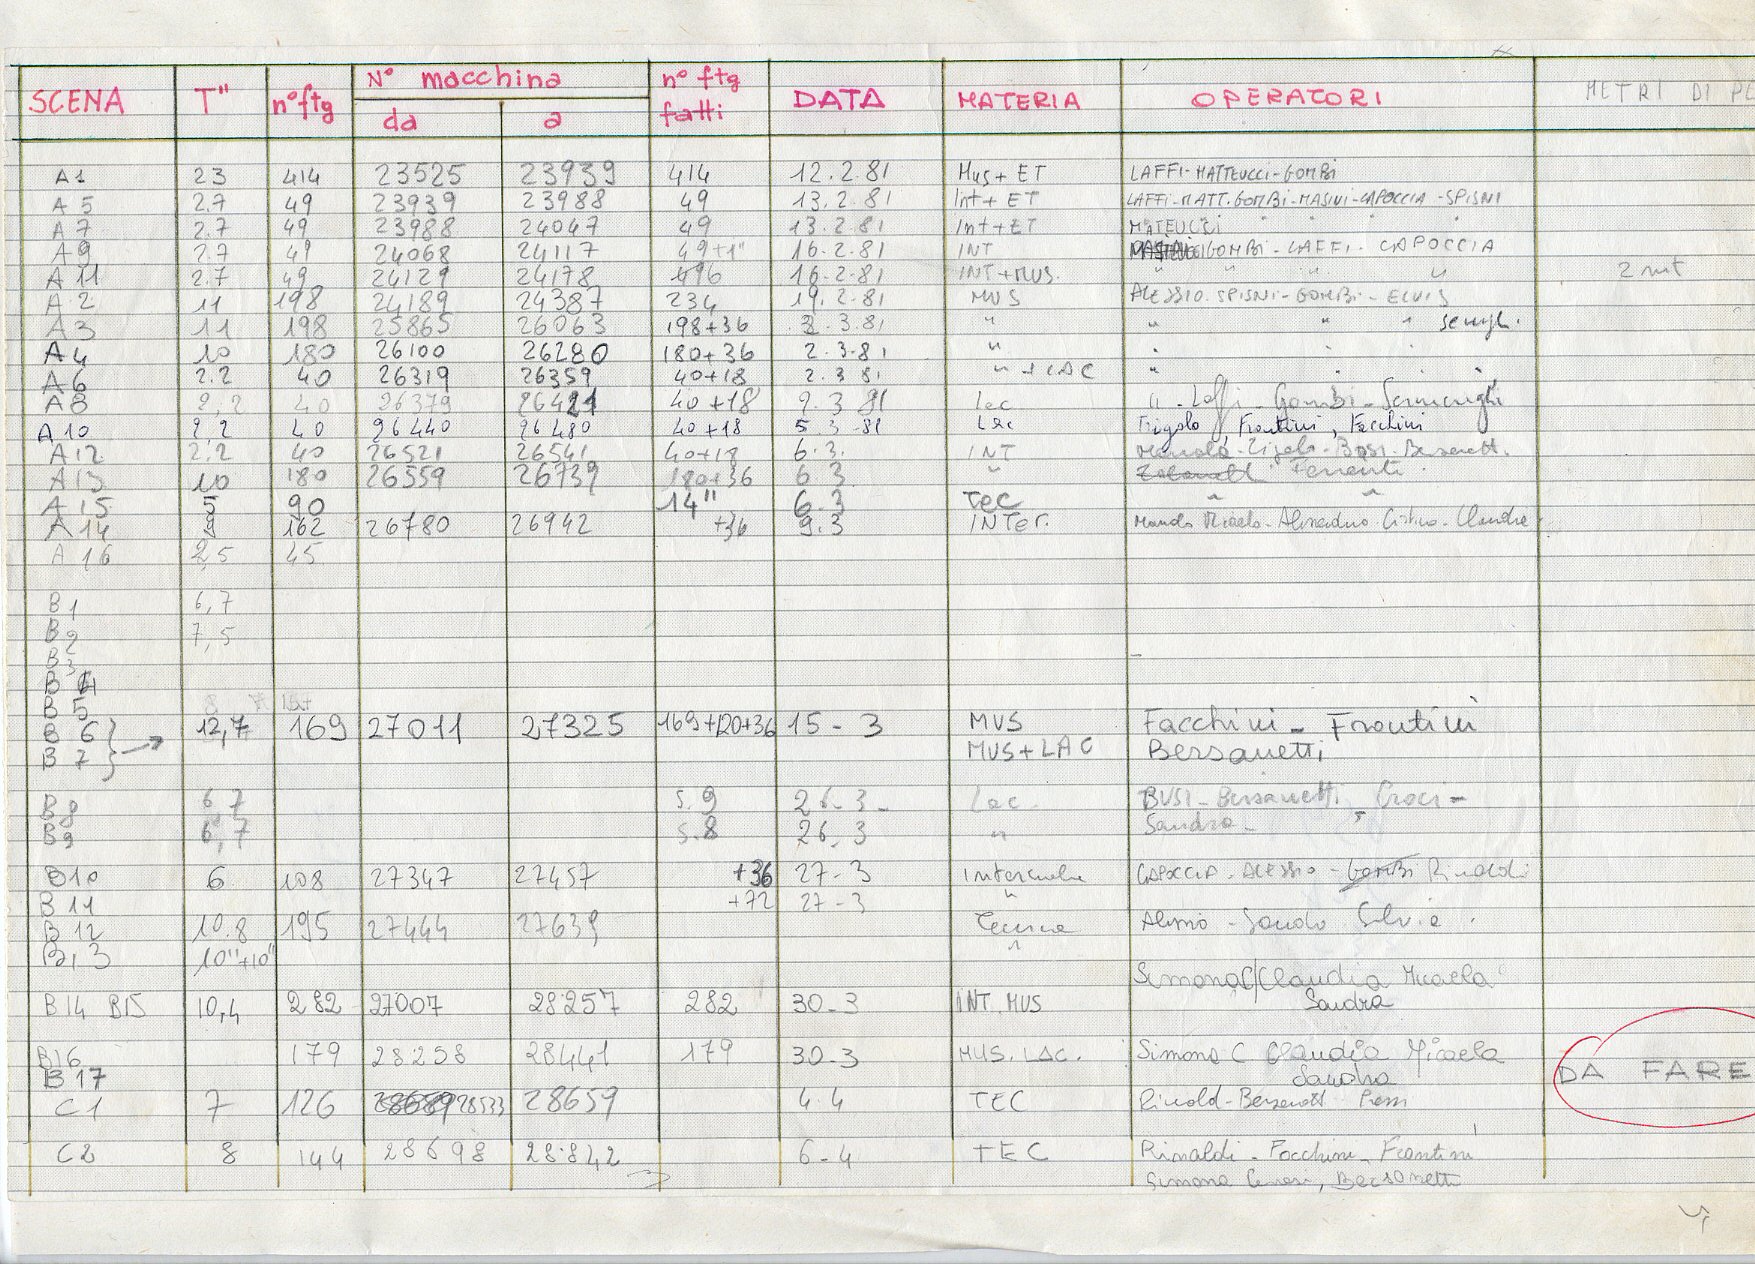 SCENA T" n°ftg N° macchina da a n° ftg fatti DATA MATERIA OPERATORI METRI DI
A1 23 414 23525 23939 414 12.2.81 Mus+ET LAFFI-MATTEUCCI-GOMBI
A5 2.7 49 23939 23988 49 13.2.81 Int+ET LAFFI-MATT.GOMBI-MASINI-CAPOCCIA-SPISNI
A7 2.7 49 23988 24047 49 13.2.81 Int+ET MATEUCCI " " "
A9 2.7 49 24068 24117 49+1" 16.2.81 INT GOMBI-LAFFI-CAPOCCIA
A11 2.7 49 24129 24178 496 16.2.81 INT+MUS. " " " " 2 mt
A2 11 198 24189 24387 234 19.2.81 MUS ALESSIO-SPISNI-GOMBI-ELVIS
A3 11 198 25865 26063 198+36 2.3.81 " " " "
A4 10 180 26100 26280 180+36 2.3.81 " " " "
A6 2.2 40 26319 26359 40+18 2.3.81 "+LAC " " "
A8 2,2 40 26379 26421 40+18 2.3 81 Lac " - Laffi - Gombi -
A10 2,2 40 26440 26480 40+18 5.3.81 Lac Frontini, Facchini
A12 2.2 40 26521 26541 40+18 6.3. INT
A13 10 180 26559 26739 180+36 6.3 "
A15 5 90 14" 6.3 TEC " "
A14 9 162 26780 26942 +36 9.3 INTER.
A16 2,5 45
B1 6,7
B2 7,5
B3
B4
B5 8
B6 12,7 169 27011 27325 169+120+36 15-3 MUS Facchini - Frontini
B7 MUS+LAC Bersanetti
B8 6,7 s.9 26-3- Lac BUSI-Bersanetti - Croci-
B9 6,7 s.8 26.3 " Sandra-
B10 6 108 27347 27457 +36 27-3 CAPOCCIA-ALESSIO-GOMBI Rinaldi
B11 +72 27-3 "
B12 10.8 195 27444 27639 Tecnica
B13 10"+10" "
Simona C/Claudia Micaela
B14 B15 10,4 282 27007 28257 282 30-3 INT.MUS Sandra
B16 179 28258 28441 179 30-3 MUS.LAC. Simona C Claudia Micaela
B17 Sandra DA FARE
C1 7 126 28533 28659 4 4 TEC
C2 8 144 28698 28842 6-4 TEC Rinaldi-Facchini-Frontini
Simona , Bersanetti